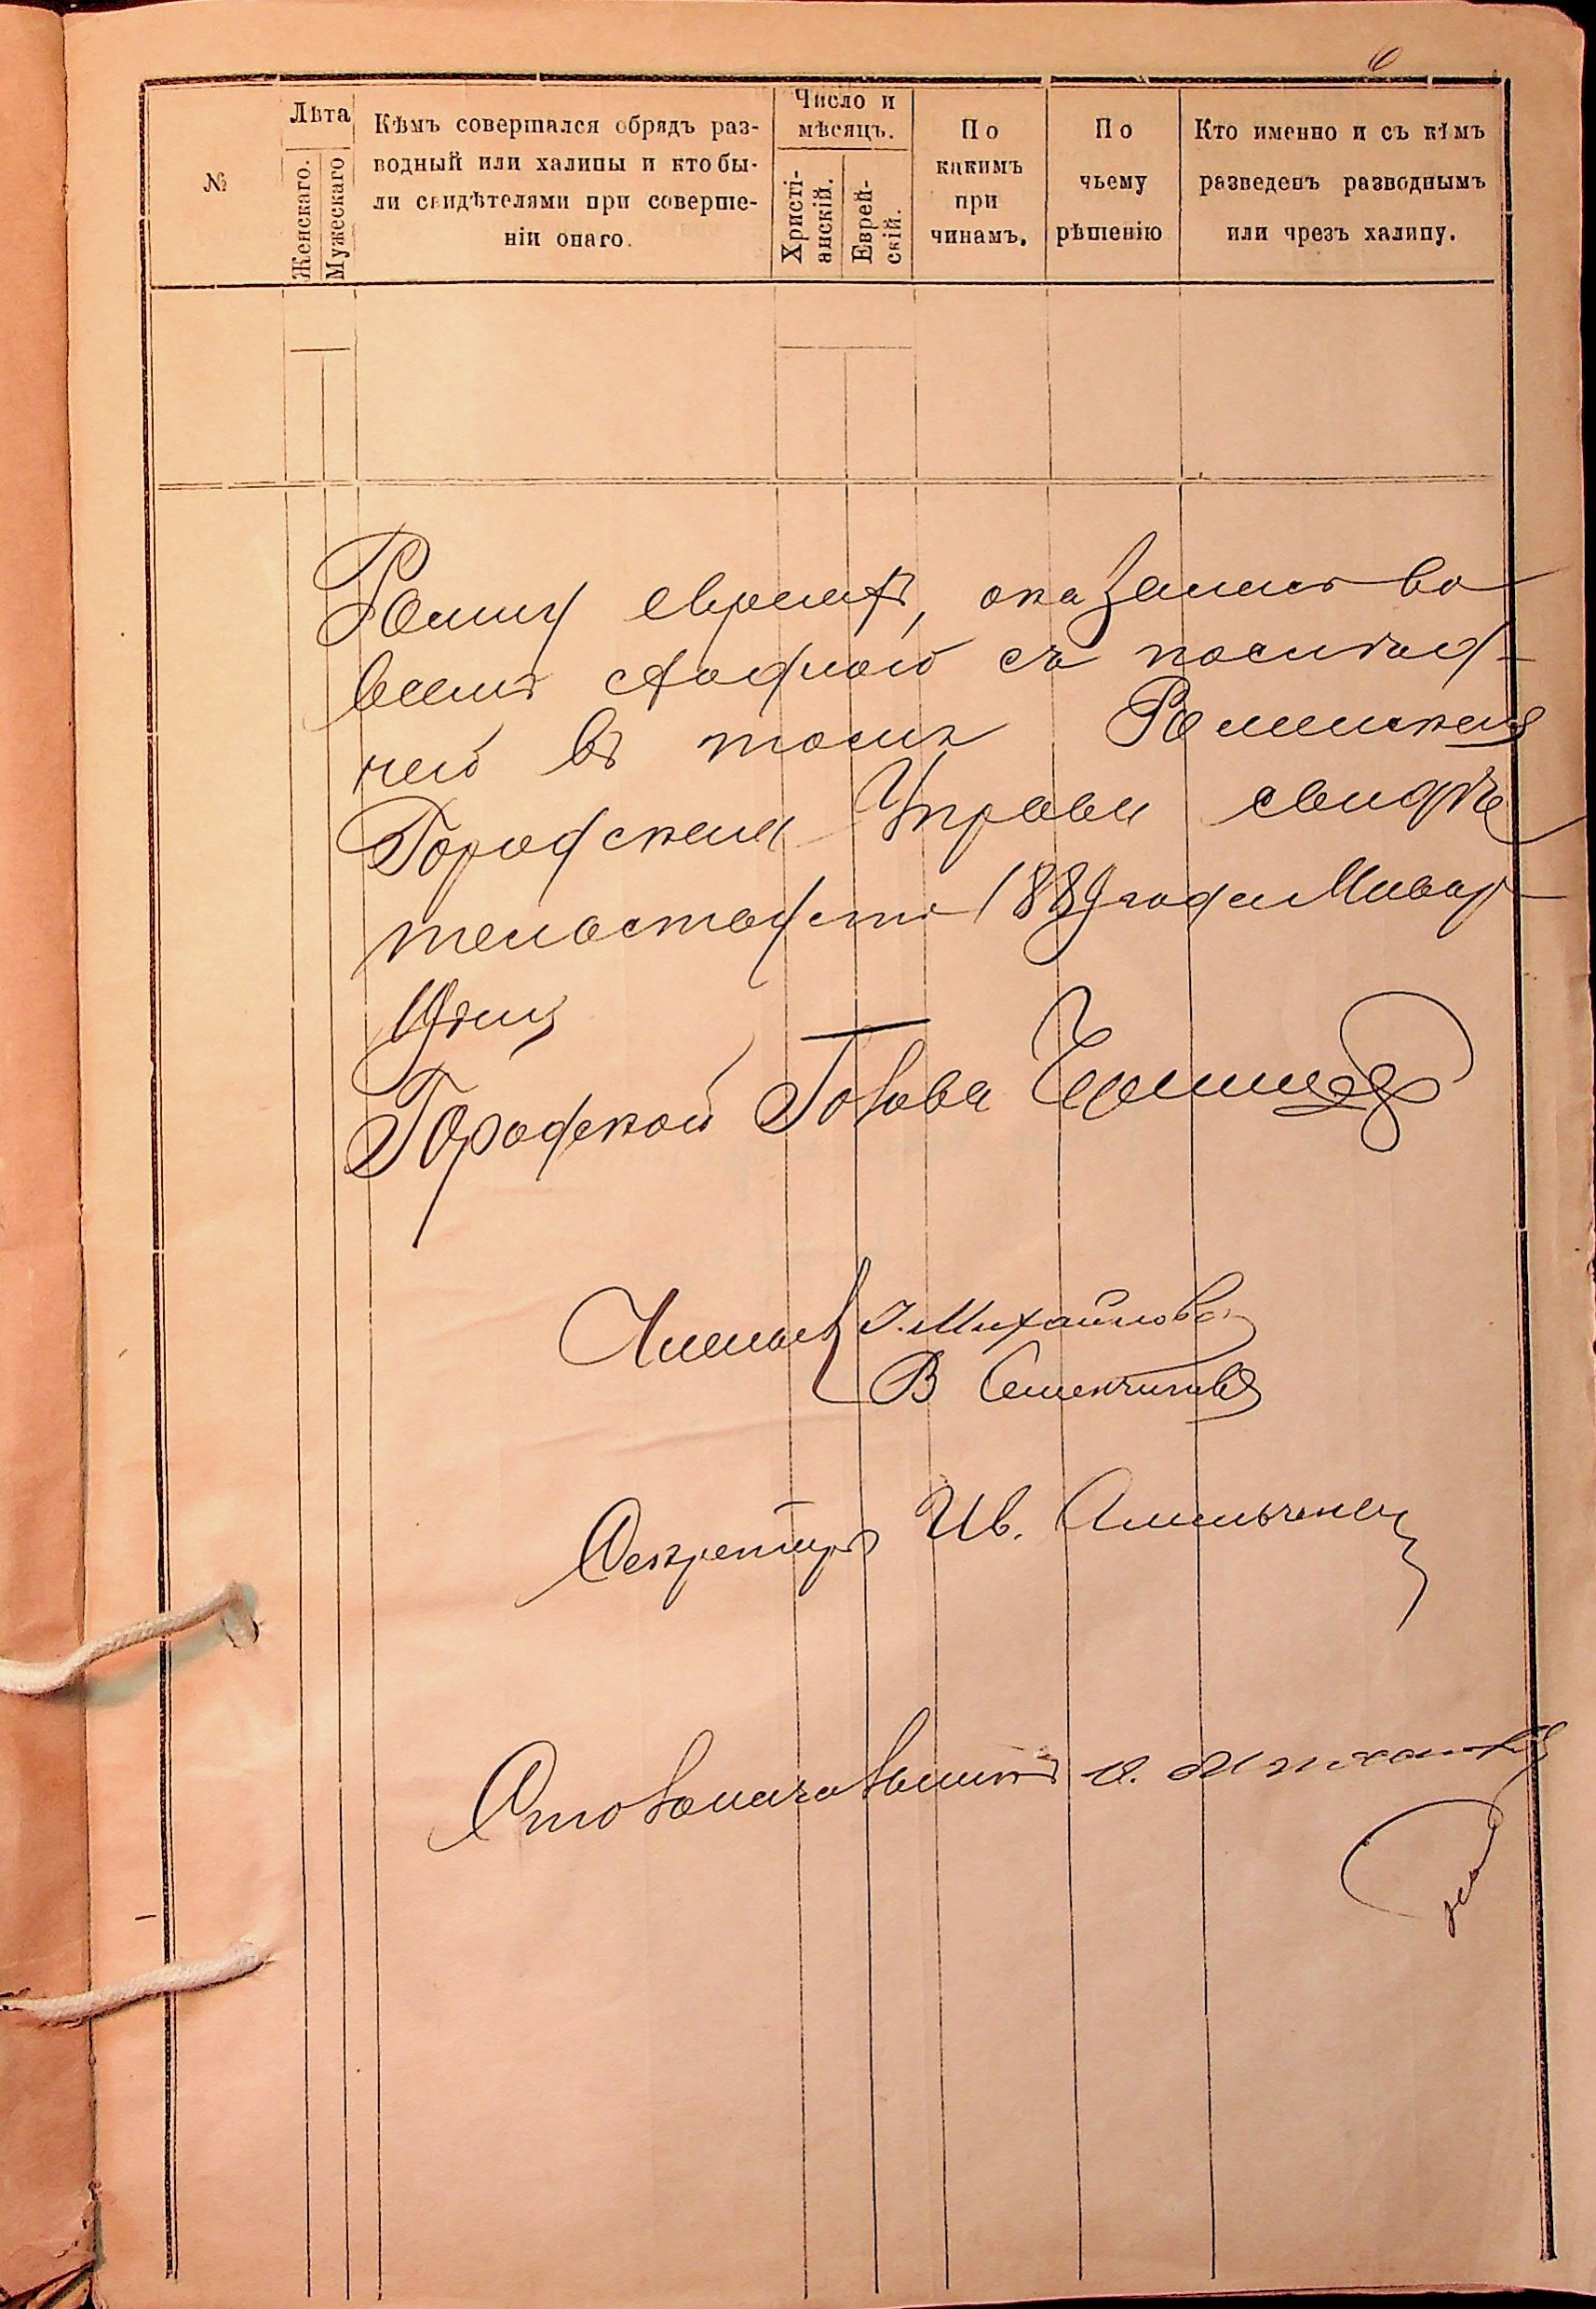 6
№
Лѣта
Женскаго.
Мужескаго
Кѣмъ совершался обрядъ раз-
водный или халицы и кто бы-
ли свидѣтелями при соверше-
ніи онаго.
Число и
мѣсяцъ.
Христі-
анскій.
Еврей-
скій.
По
какимъ
при
чинамъ.
По
чьему
рѣшенію
Кто именно и съ кѣмъ
разведенъ разводнымъ
или чрезъ халицу.
евреевъ, оказалась во
всемъ сходною съ
чего въ томъ Роменская
Городская Управа свидѣ
1889 года Январ
Городской Голова
Члены И. Михайловъ
В
Секретарь Ив.
Столоначальникъ